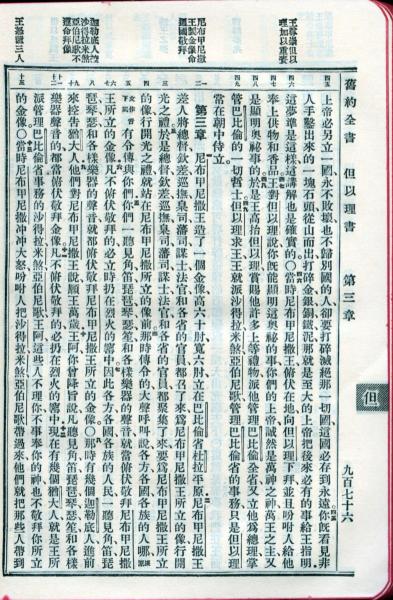 舊約全書 但以理書 第三章
但
九百七十六
王尊崇但以
理加以重賞
尼布甲尼撒
王製金像命
通國敬拜
迦勒底人控
沙得拉米煞
亞伯尼歌不
遵命拜像
上帝必另立一國永不敗壞也不歸別國的人卻要打碎滅絕那一切國這國必存到永遠你既看見非
人手鑿出來的一塊石頭從山而出打碎金銀銅鐵泥那就是至大的上帝把後來必有的事給王指明
這夢準是這樣這講解也是確實的○當時尼布甲尼撒王俯伏在地向但以理下拜並且吩咐人給他
奉上供物和香品王對但以理說你既能顯明這奧祕的事你們的上帝誠然是萬神之神萬王之主又
是顯明奧祕事的於是王高抬但以理賞賜他許多上等禮物派他管理巴比倫全省又立他爲總理掌
管巴比倫的一切哲士但以理求王王就派沙得拉米煞亞伯尼歌管理巴比倫省的事務只是但以理
常在朝中侍立。
第三章 尼布甲尼撒王造了一個金像高六十肘寬六肘立在巴比倫省杜拉平原尼布甲尼撒王
差人將總督欽差巡撫臬司藩司謀士法官和各省的官員都召了來爲尼布甲尼撒王所立的像行開
光之禮於是總督欽差巡撫臬司藩司謀士法官和各省的官員都聚集了來要爲尼布甲尼撒王所立
的像行開光之禮就站在尼布甲尼撒所立的像前那時傳令的大聲呼叫說各方各國各族的人哪
有令傳與你們你們一聽見角笛琵琶琴瑟笙和各樣樂器的聲音就當俯伏敬拜尼布甲尼撒
王所立的金像凡不俯伏敬拜的必立時扔在烈火的窰中因此各方各國各族的人民一聽見角笛琵
琶琴瑟和各樣樂器的聲音就都俯伏敬拜尼布甲尼撒王所立的金像○那時有幾個迦勒底人進前
來控告猶大人他們對尼布甲尼撒王說願王萬歲王阿你曾降旨說凡聽見角笛琵琶琴瑟笙和各樣
樂器聲音的都當俯伏敬拜金像凡不俯伏敬拜的必扔在烈火的窰中現在有幾個猶大人就是王所
派管理巴比倫省事務的沙得拉米煞亞伯尼歌王阿這些人不理你不事奉你的神也不敬拜你所立
的金像○當時尼布甲尼撒沖沖大怒吩咐人把沙得拉米煞亞伯尼歌帶過來他們就把那些人帶到